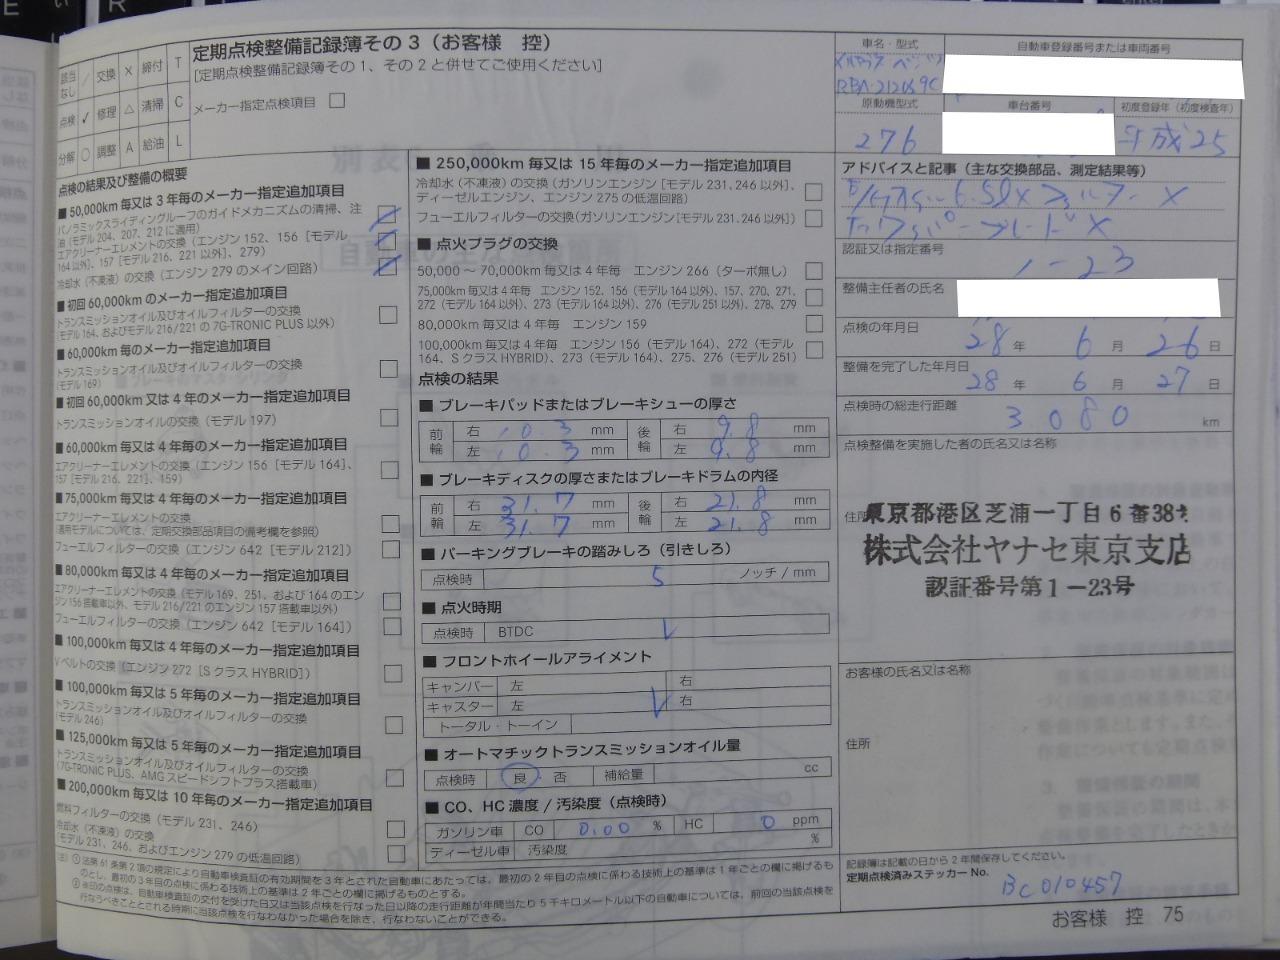 定期点検整備記録簿その3（お客様 控）
[定期点検整備記録簿その1、その2と併せてご使用ください]
該当なし / 交換 × 締付 T
点検 ✓ 修理 △ 清掃 C
分解 ○ 調整 A 給油 L
メーカー指定点検項目 □
点検の結果及び整備の概要
■ 50,000km 毎又は 3 年毎のメーカー指定追加項目
パノラミックスライディングルーフのガイドメカニズムの清掃、注
油（モデル 204、207、212 に適用）
エアクリーナーエレメントの交換（エンジン 152、156［モデル
164 以外］、157［モデル 216、221 以外］、279）
冷却水（不凍液）の交換（エンジン 279 のメイン回路）
■ 初回 60,000km のメーカー指定追加項目
トランスミッションオイル及びオイルフィルターの交換
（モデル 164、およびモデル 216/221 の 7G-TRONIC PLUS 以外）
■ 60,000km 毎のメーカー指定追加項目
トランスミッションオイル及びオイルフィルターの交換
（モデル 169）
■ 初回 60,000km 又は 4 年毎のメーカー指定追加項目
トランスミッションオイルの交換（モデル 197）
■ 60,000km 毎又は 4 年毎のメーカー指定追加項目
エアクリーナーエレメントの交換（エンジン 156［モデル 164］、
157［モデル 216、221］、159）
■ 75,000km 毎又は 4 年毎のメーカー指定追加項目
エアクリーナーエレメントの交換
（適用モデルについては、定期交換部品項目の備考欄を参照）
フューエルフィルターの交換（エンジン 642［モデル 212］）
■ 80,000km 毎又は 4 年毎のメーカー指定追加項目
エアクリーナーエレメントの交換（モデル 169、251、および 164 のエン
ジン 156 搭載車以外、モデル 216/221 のエンジン 157 搭載車以外）
フューエルフィルターの交換（エンジン 642［モデル 164］）
■ 100,000km 毎又は 4 年毎のメーカー指定追加項目
V ベルトの交換（エンジン 272［S クラス HYBRID］）
■ 100,000km 毎又は 5 年毎のメーカー指定追加項目
トランスミッションオイル及びオイルフィルターの交換
（モデル 246）
■ 125,000km 毎又は 5 年毎のメーカー指定追加項目
トランスミッションオイル及びオイルフィルターの交換
（7G-TRONIC PLUS、AMG スピードシフトプラス搭載車）
■ 200,000km 毎又は 10 年毎のメーカー指定追加項目
燃料フィルターの交換（モデル 231、246）
冷却水（不凍液）の交換
（モデル 231、246、およびエンジン 279 の低温回路）
■ 250,000km 毎又は 15 年毎のメーカー指定追加項目
冷却水（不凍液）の交換（ガソリンエンジン［モデル 231、246 以外］、
ディーゼルエンジン、エンジン 275 の低温回路）
フューエルフィルターの交換（ガソリンエンジン［モデル 231、246 以外］）
■ 点火プラグの交換
50,000 ～ 70,000km 毎又は 4 年毎 エンジン 266（ターボ無し）
75,000km 毎又は 4 年毎 エンジン 152、156（モデル 164 以外）、157、270、271、
272（モデル 164 以外）、273（モデル 164 以外）、276（モデル 251 以外）、278、279
80,000km 毎又は 4 年毎 エンジン 159
100,000km 毎又は 4 年毎 エンジン 156（モデル 164）、272（モデル
164、S クラス HYBRID）、273（モデル 164）、275、276（モデル 251）
点検の結果
■ ブレーキパッドまたはブレーキシューの厚さ
前輪 右 10.3 mm 後輪 右 9.8 mm
左 10.3 mm 左 9.8 mm
■ ブレーキディスクの厚さまたはブレーキドラムの内径
前輪 右 31.7 mm 後輪 右 21.8 mm
左 31.7 mm 左 21.8 mm
■ パーキングブレーキの踏みしろ（引きしろ）
点検時 5 ノッチ / mm
■ 点火時期
点検時 BTDC ✓
■ フロントホイールアライメント
キャンバー 左 右
キャスター 左 ✓ 右
トータル・トーイン
■ オートマチックトランスミッションオイル量
点検時 良 否 補給量 cc
■ CO、HC 濃度 / 汚染度（点検時）
ガソリン車 CO 0.00 % HC 0 ppm
ディーゼル車 汚染度 %
（注）① 法第 61 条第 2 項の規定により自動車検査証の有効期間を 3 年とされた自動車にあたっては、最初の 2 年目の点検に係わる技術上の基準は 1 年ごとの欄に掲げるも
のとし、最初の 3 年目の点検に係わる技術上の基準は 2 年ごとの欄に掲げるものとする。
② ※印の点検は、自動車検査証の交付を受けた日又は当該点検を行なった日以降の走行距離が年間当たり 5 千キロメートル以下の自動車については、前回の当該点検を
行なうべきこととされる時期に当該点検を行なわなかった場合を除き、行なわないことができる。
車名・型式
メルセデス・ベンツ
RBA-212059C
自動車登録番号または車両番号
原動機型式
276
車台番号
初度登録年（初度検査年）
平成25
アドバイスと記事（主な交換部品、測定結果等）
6.5ℓ× フィルター ×
ブレード ×
認証又は指定番号
1-23
整備主任者の氏名
点検の年月日
28 年 6 月 26 日
整備を完了した年月日
28 年 6 月 27 日
点検時の総走行距離
3080 km
点検整備を実施した者の氏名又は名称
住所
東京都港区芝浦一丁目6番38号
株式会社ヤナセ東京支店
認証番号第1-23号
お客様の氏名又は名称
住所
記録簿は記載の日から 2 年間保存してください。
定期点検済みステッカー No.
BC010457
お客様 控 75